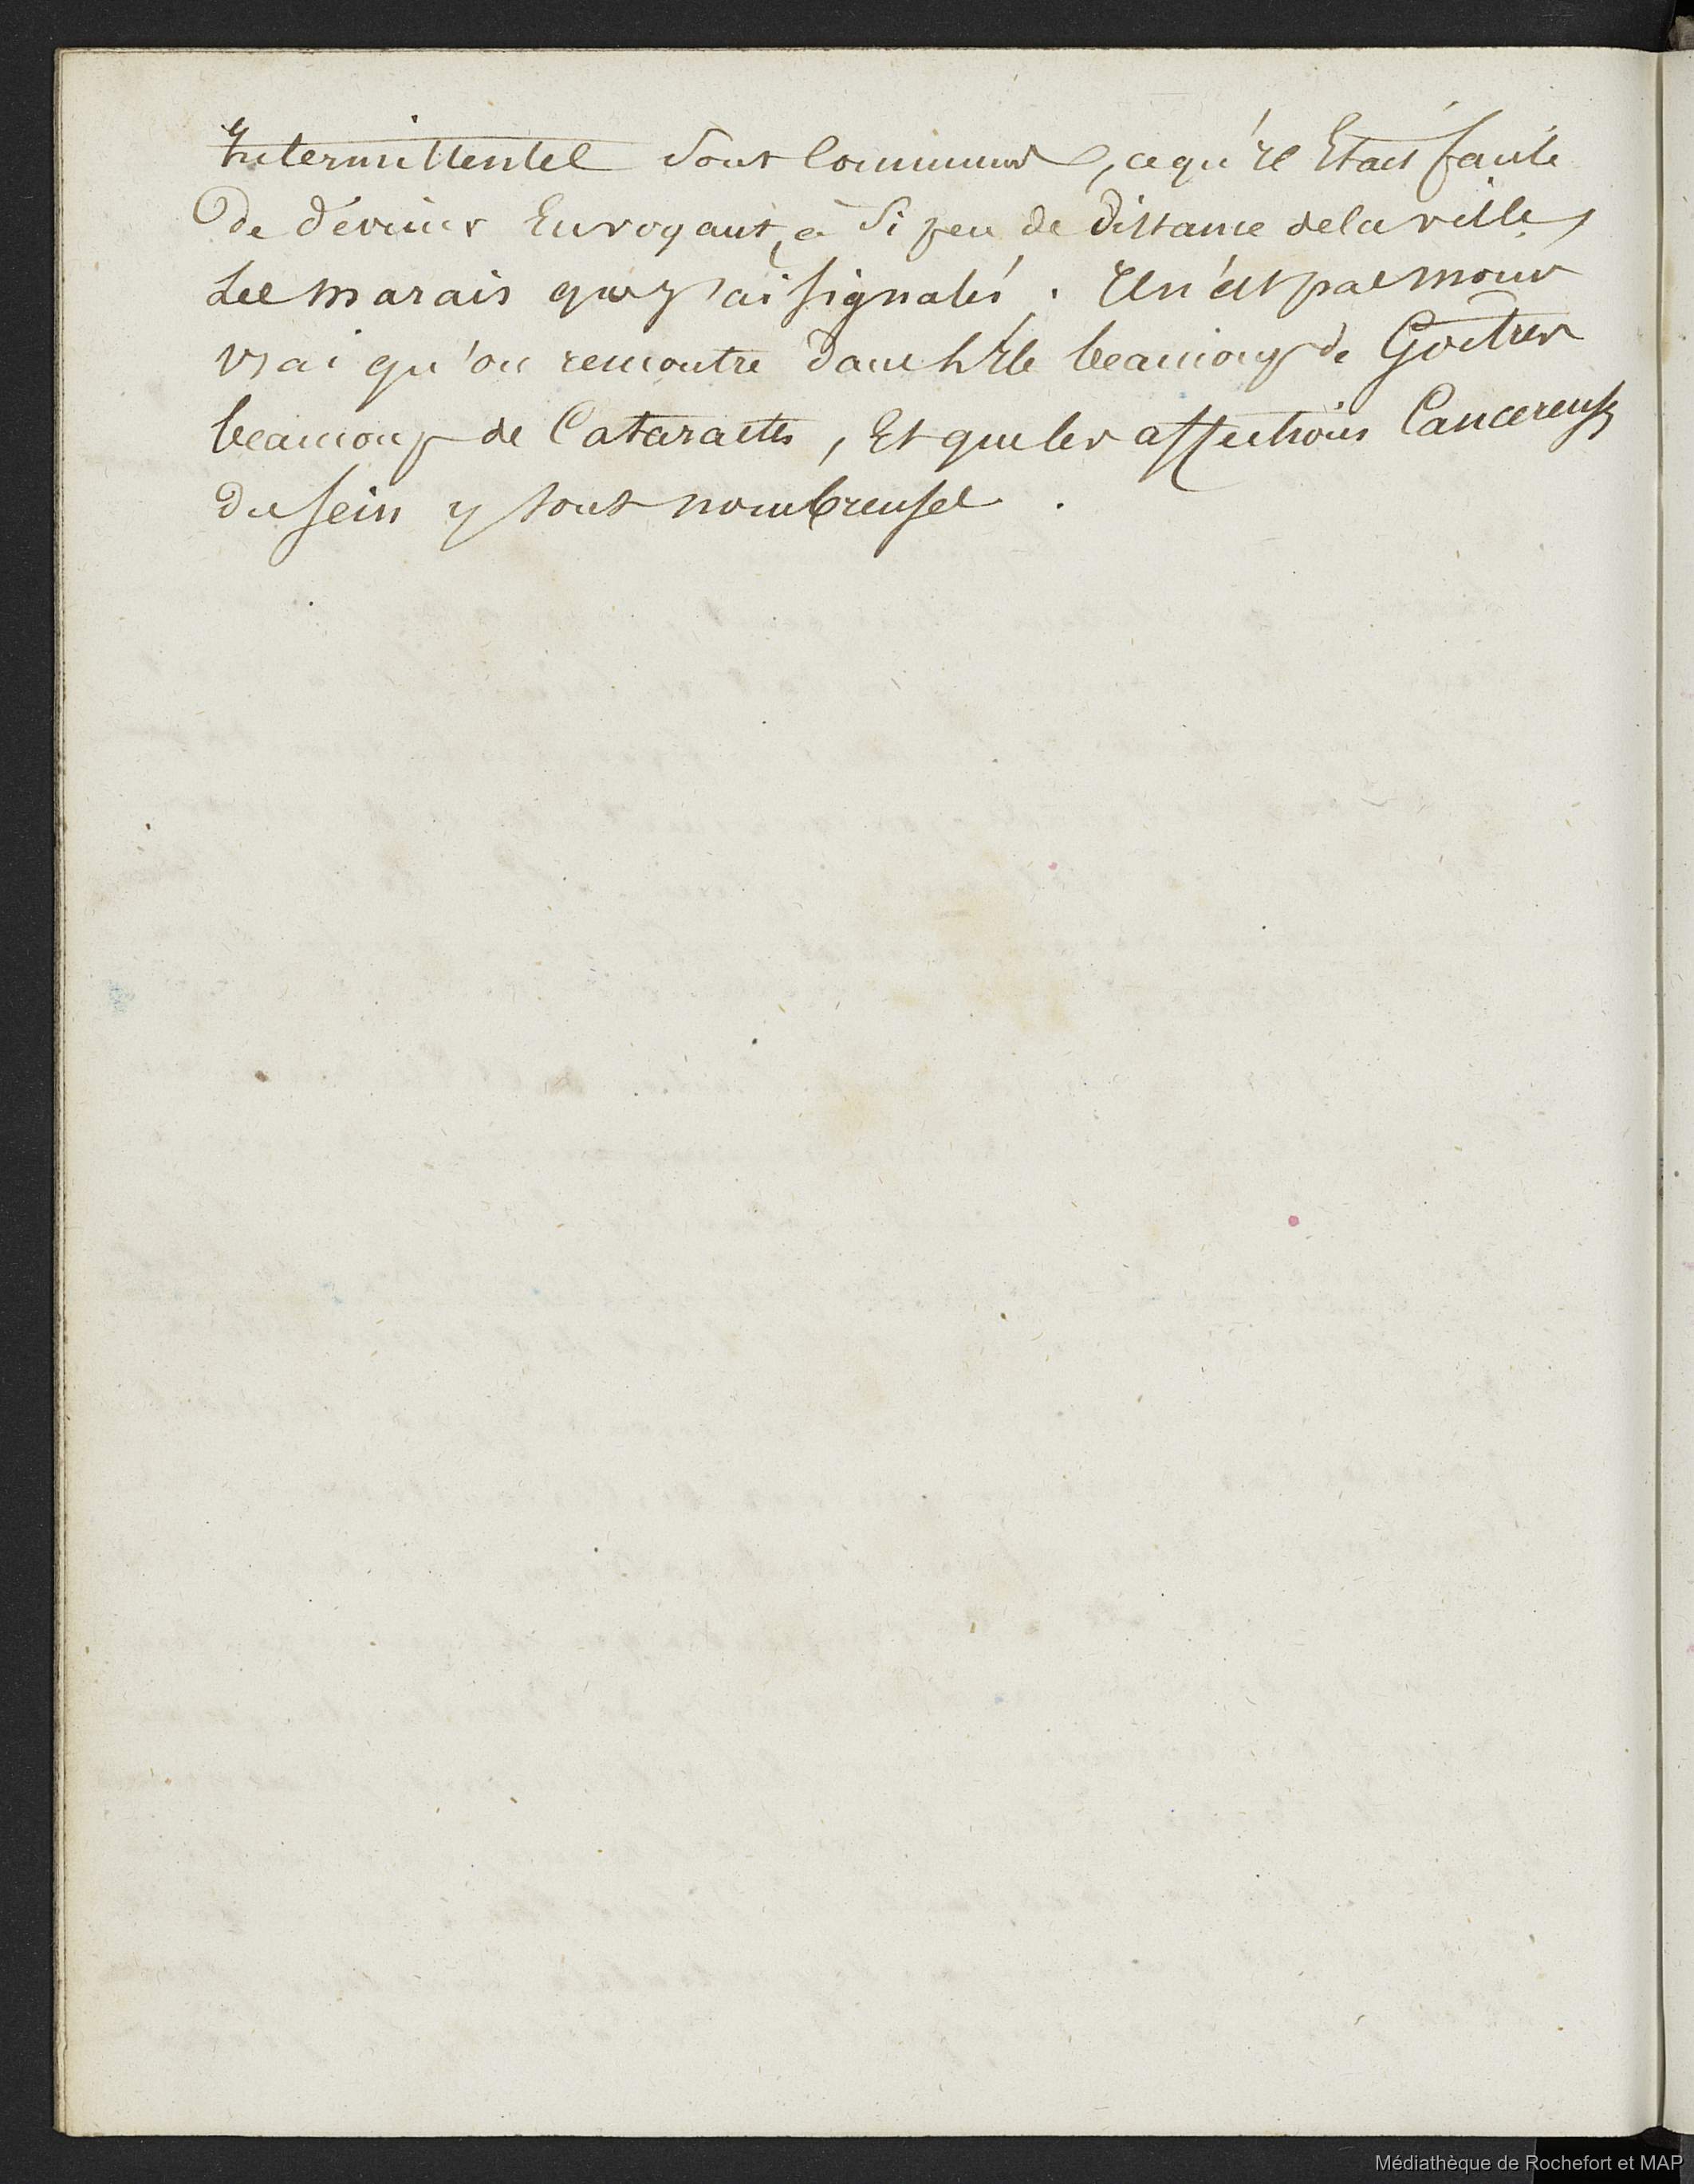 Intermittentes sont communes, ce qu'il Etait facile
De déviner En voyant, à si peu de distance de la ville,
Les marais que j'ai signalés. Il n'est pas moins
vrai qu'on rencontre dans l'Ile beaucoup de Goîtres
beaucoup de Cataractes, Et que les affections Cancereuses
du sein y sont nombreuses.
Médiathèque de Rochefort et MAP